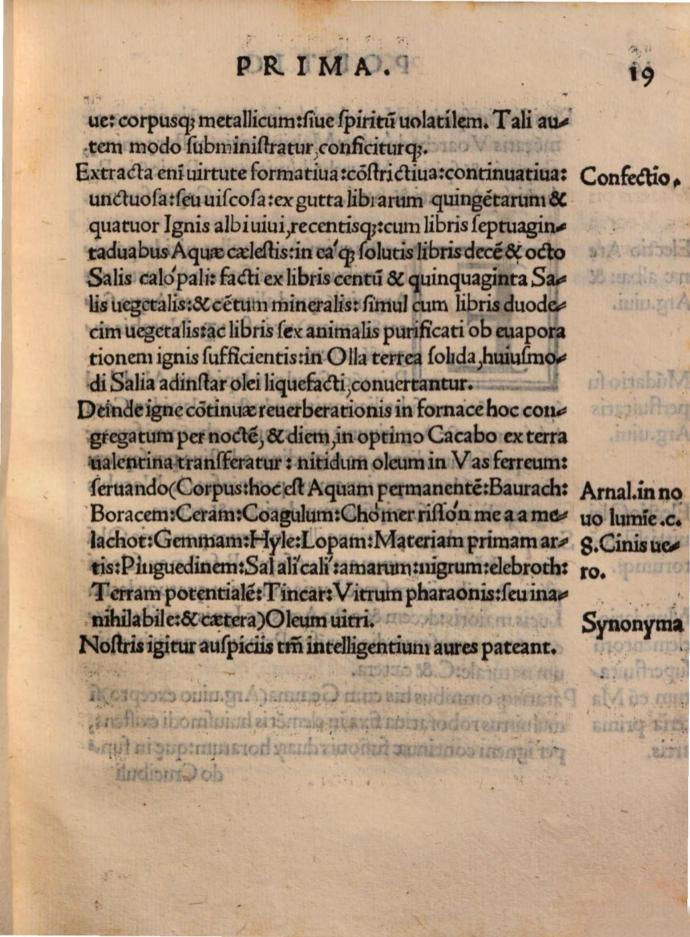 PRIMA.
19
ue: corpusq; metallicum:siue spiritū uolatilem. Tali au-
tem modo subministratur,conficiturq;.
Extracta enī uirtute formatiua:cōstrictiua:continuatiua:
Confectio.
unctuosa:seu uiscosa:ex gutta librarum quingētarum &
quatuor Ignis albi uiui,recentisq;:cum libris septuagin-
taduabus Aquæ cælestis:in ea'q; solutis libris decē & octo
Salis calo'pali: facti ex libris centū & quinquaginta Sa-
lis uegetalis:& cētum mineralis: simul cum libris duode-
cim uegetalis:ac libris sex animalis purificati ob euapora
tionem ignis sufficientis:in Olla terrea solida,huiusmo-
di Salia adinstar olei liquefacti,conuertantur.
Deinde igne cōtinuæ reuerberationis in fornace hoc con-
gregatum per noctē, & diem,in optimo Cacabo ex terra
ualentina transferatur : nitidum oleum in Vas ferreum:
seruando(Corpus:hoc est Aquam permanentē:Baurach:
Arnal.in no
Boracem:Ceram:Coagulum:Cho'mer risso'n me a a me-
uo lumīe .c.
lachot:Gemmam:Hyle:Lopam:Materiam primam ar-
8.Cinis ue-
tis:Pinguedinem:Sal ali'cali':amarum:nigrum:elebroth:
ro.
Terram potentialē:Tincar:Vitrum pharaonis:seu ina-
nihilabile:& cætera)Oleum uitri.
Synonyma
Nostris igitur auspiciis tm̄ intelligentium aures pateant.